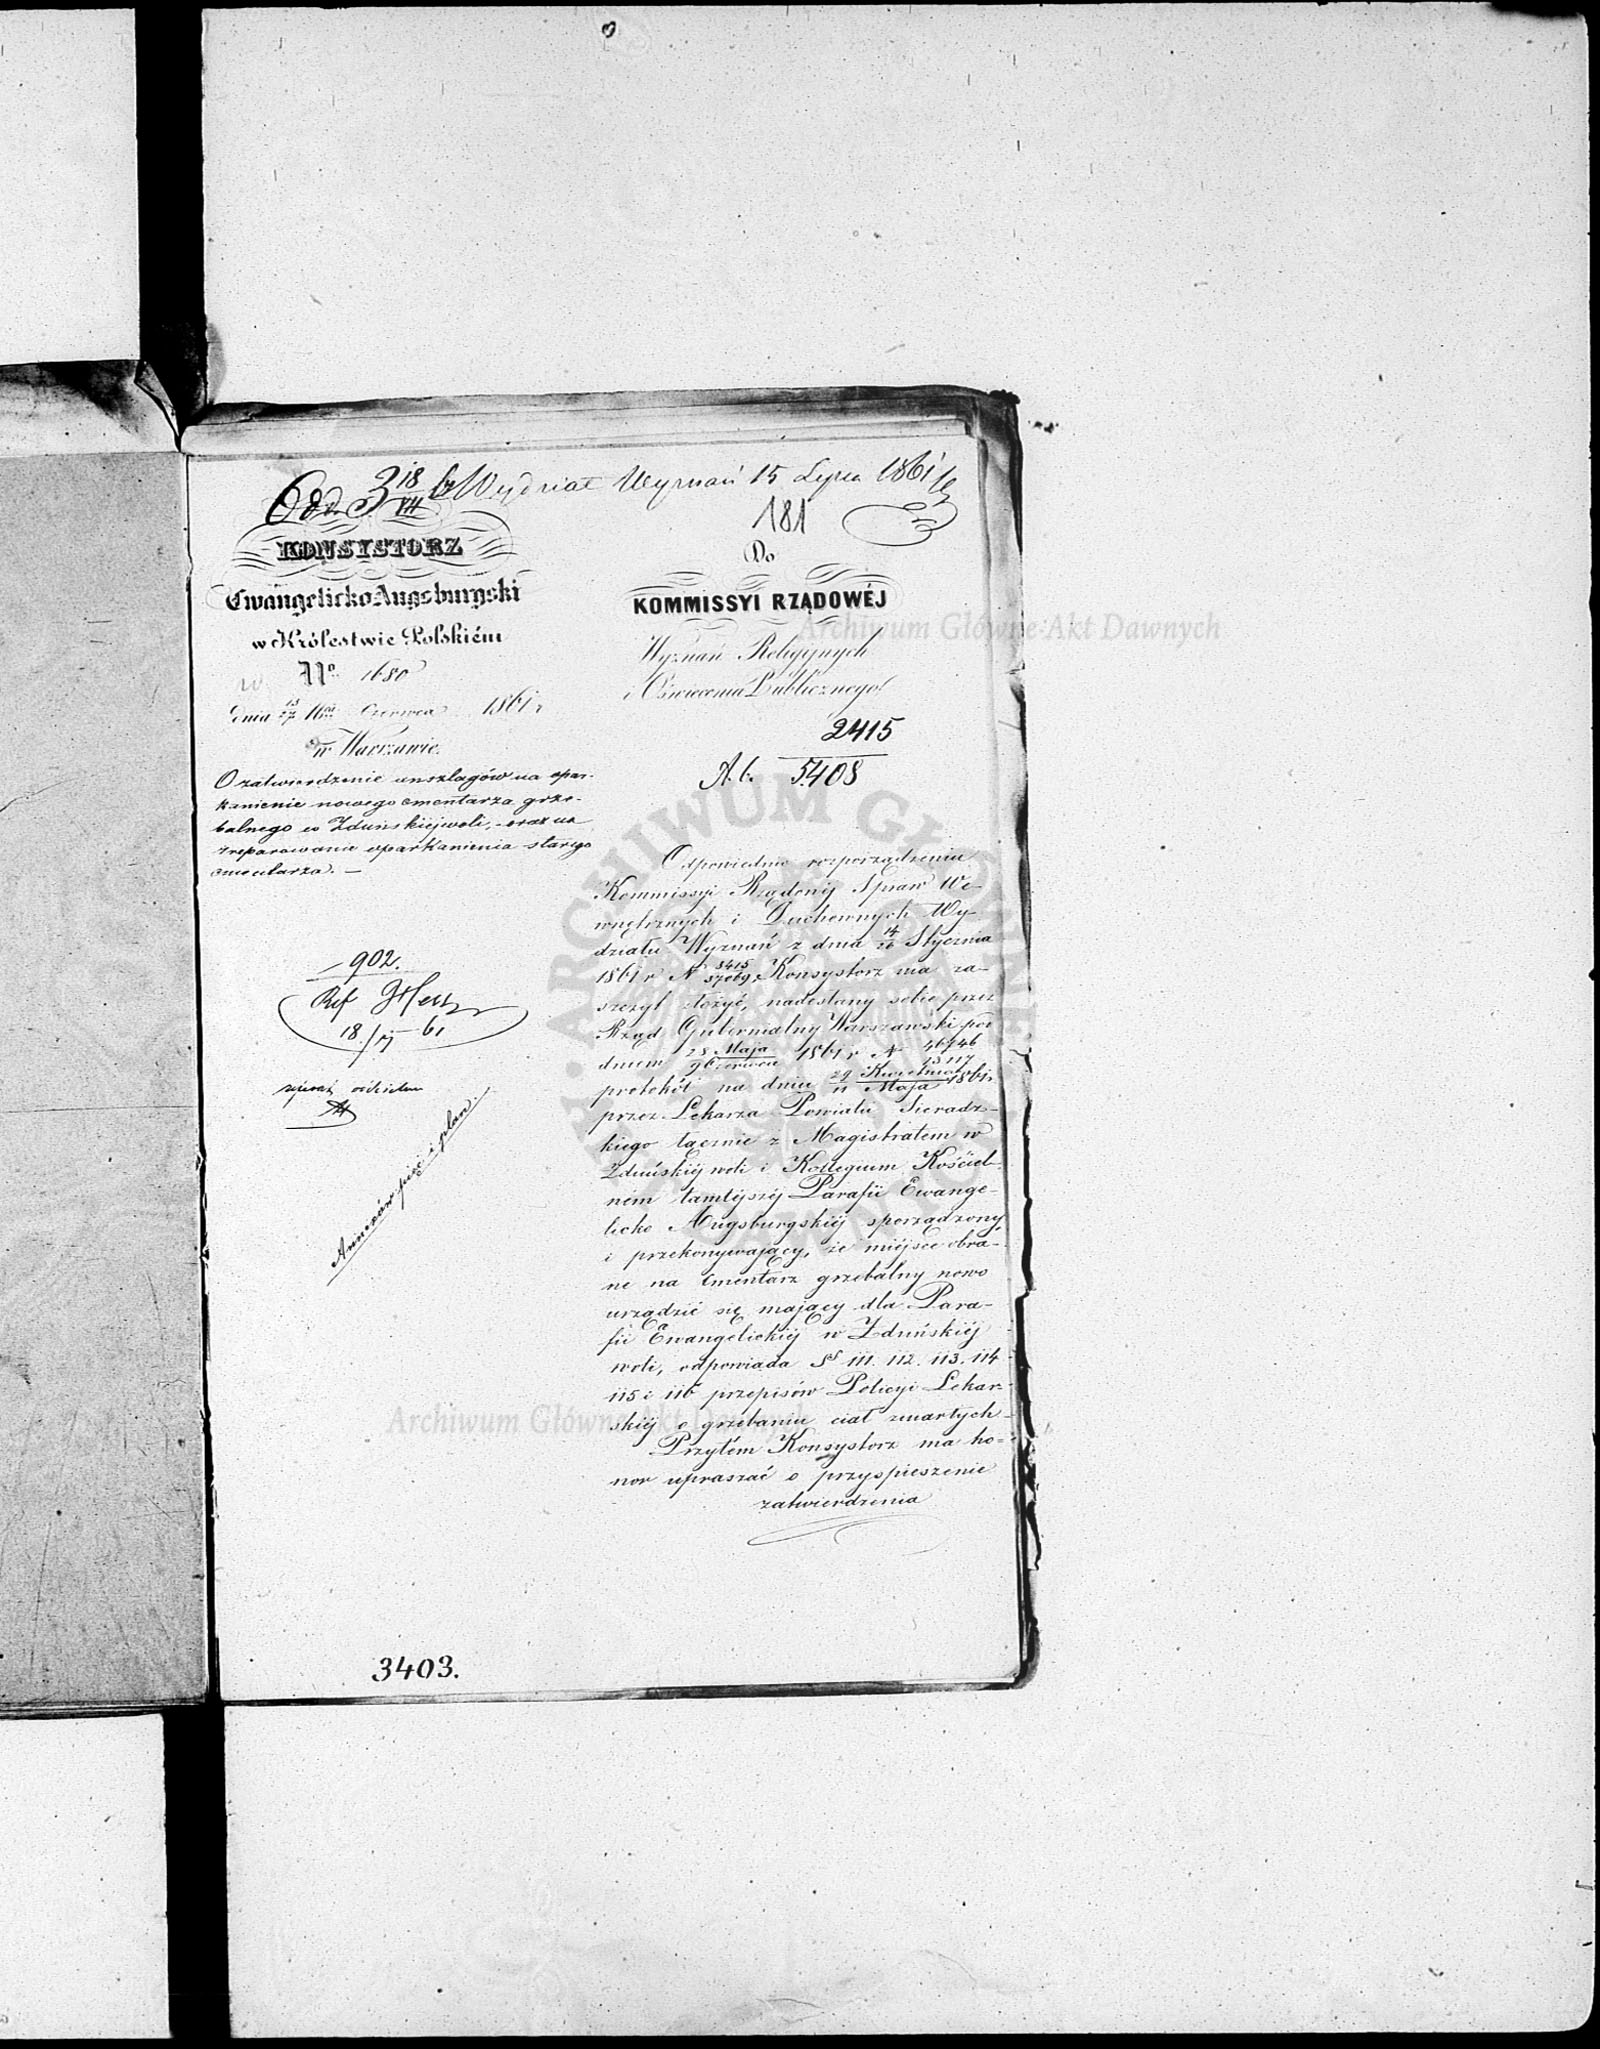 Odd. 3 18/VII Wydział Wyznań 15 Lipca 1861 r.
181
KONSYSTORZ
Ewangelicko Augsburgski
w Królestwie Polskiém
No 1680
dnia 15/27 Czerwca 1861 r.
w Warszawie.
O zatwierdzenie anszlagów na opar-
kanienie nowego cmentarza grze-
balnego w Zduńskiéjwoli, oraz na
zreparowanie oparkanienia starego
cmentarza. —
902.
Ref
18/ 61
Annexów pięć i plan.
3403.
Do
KOMMISSYI RZĄDOWÉJ
Wyznań Religijnych
i Oświecenia Publicznego
2415
A. b. 5408
Odpowiednio rozporządzeniu
Kommissyi Rządowéj Spraw We-
wnętrznych i Duchownych Wy-
działu Wyznań z dnia 14/26 Stycznia
1861 r N 3415/37069, Konsystorz ma za-
szczyt złożyć, nadesłany sobie przez
Rząd Gubernialny Warszawski pod
dniem 28 Maja/9 Czerwca 1861 r N 46746/23117
protokół na dniu 29 Kwietnia/11 Maja 1861 r
przez Lekarza Powiatu Sieradz-
kiego łącznie z Magistratem w
Zduńskiéj woli i Kollegium Kościel-
ném tamtéjszéj Parafii Ewange-
licko Augsburgskiéj sporządzony
i przekonywający, że miéjsce obra-
ne na cmentarz grzebalny nowo
urządzić się mający dla Para-
fii Ewangelickiéj w Zduńskiéj
woli, odpowiada §§ 111. 112. 113. 114
115 i 116 przepisów Policyi Lekar-
skiéj o grzebaniu ciał zmarłych
Przytém Konsystorz ma ho-
nor upraszać o przyspieszenie
zatwierdzenia
Archiwum Główne Akt Dawnych
Archiwum Główne Akt Dawnych